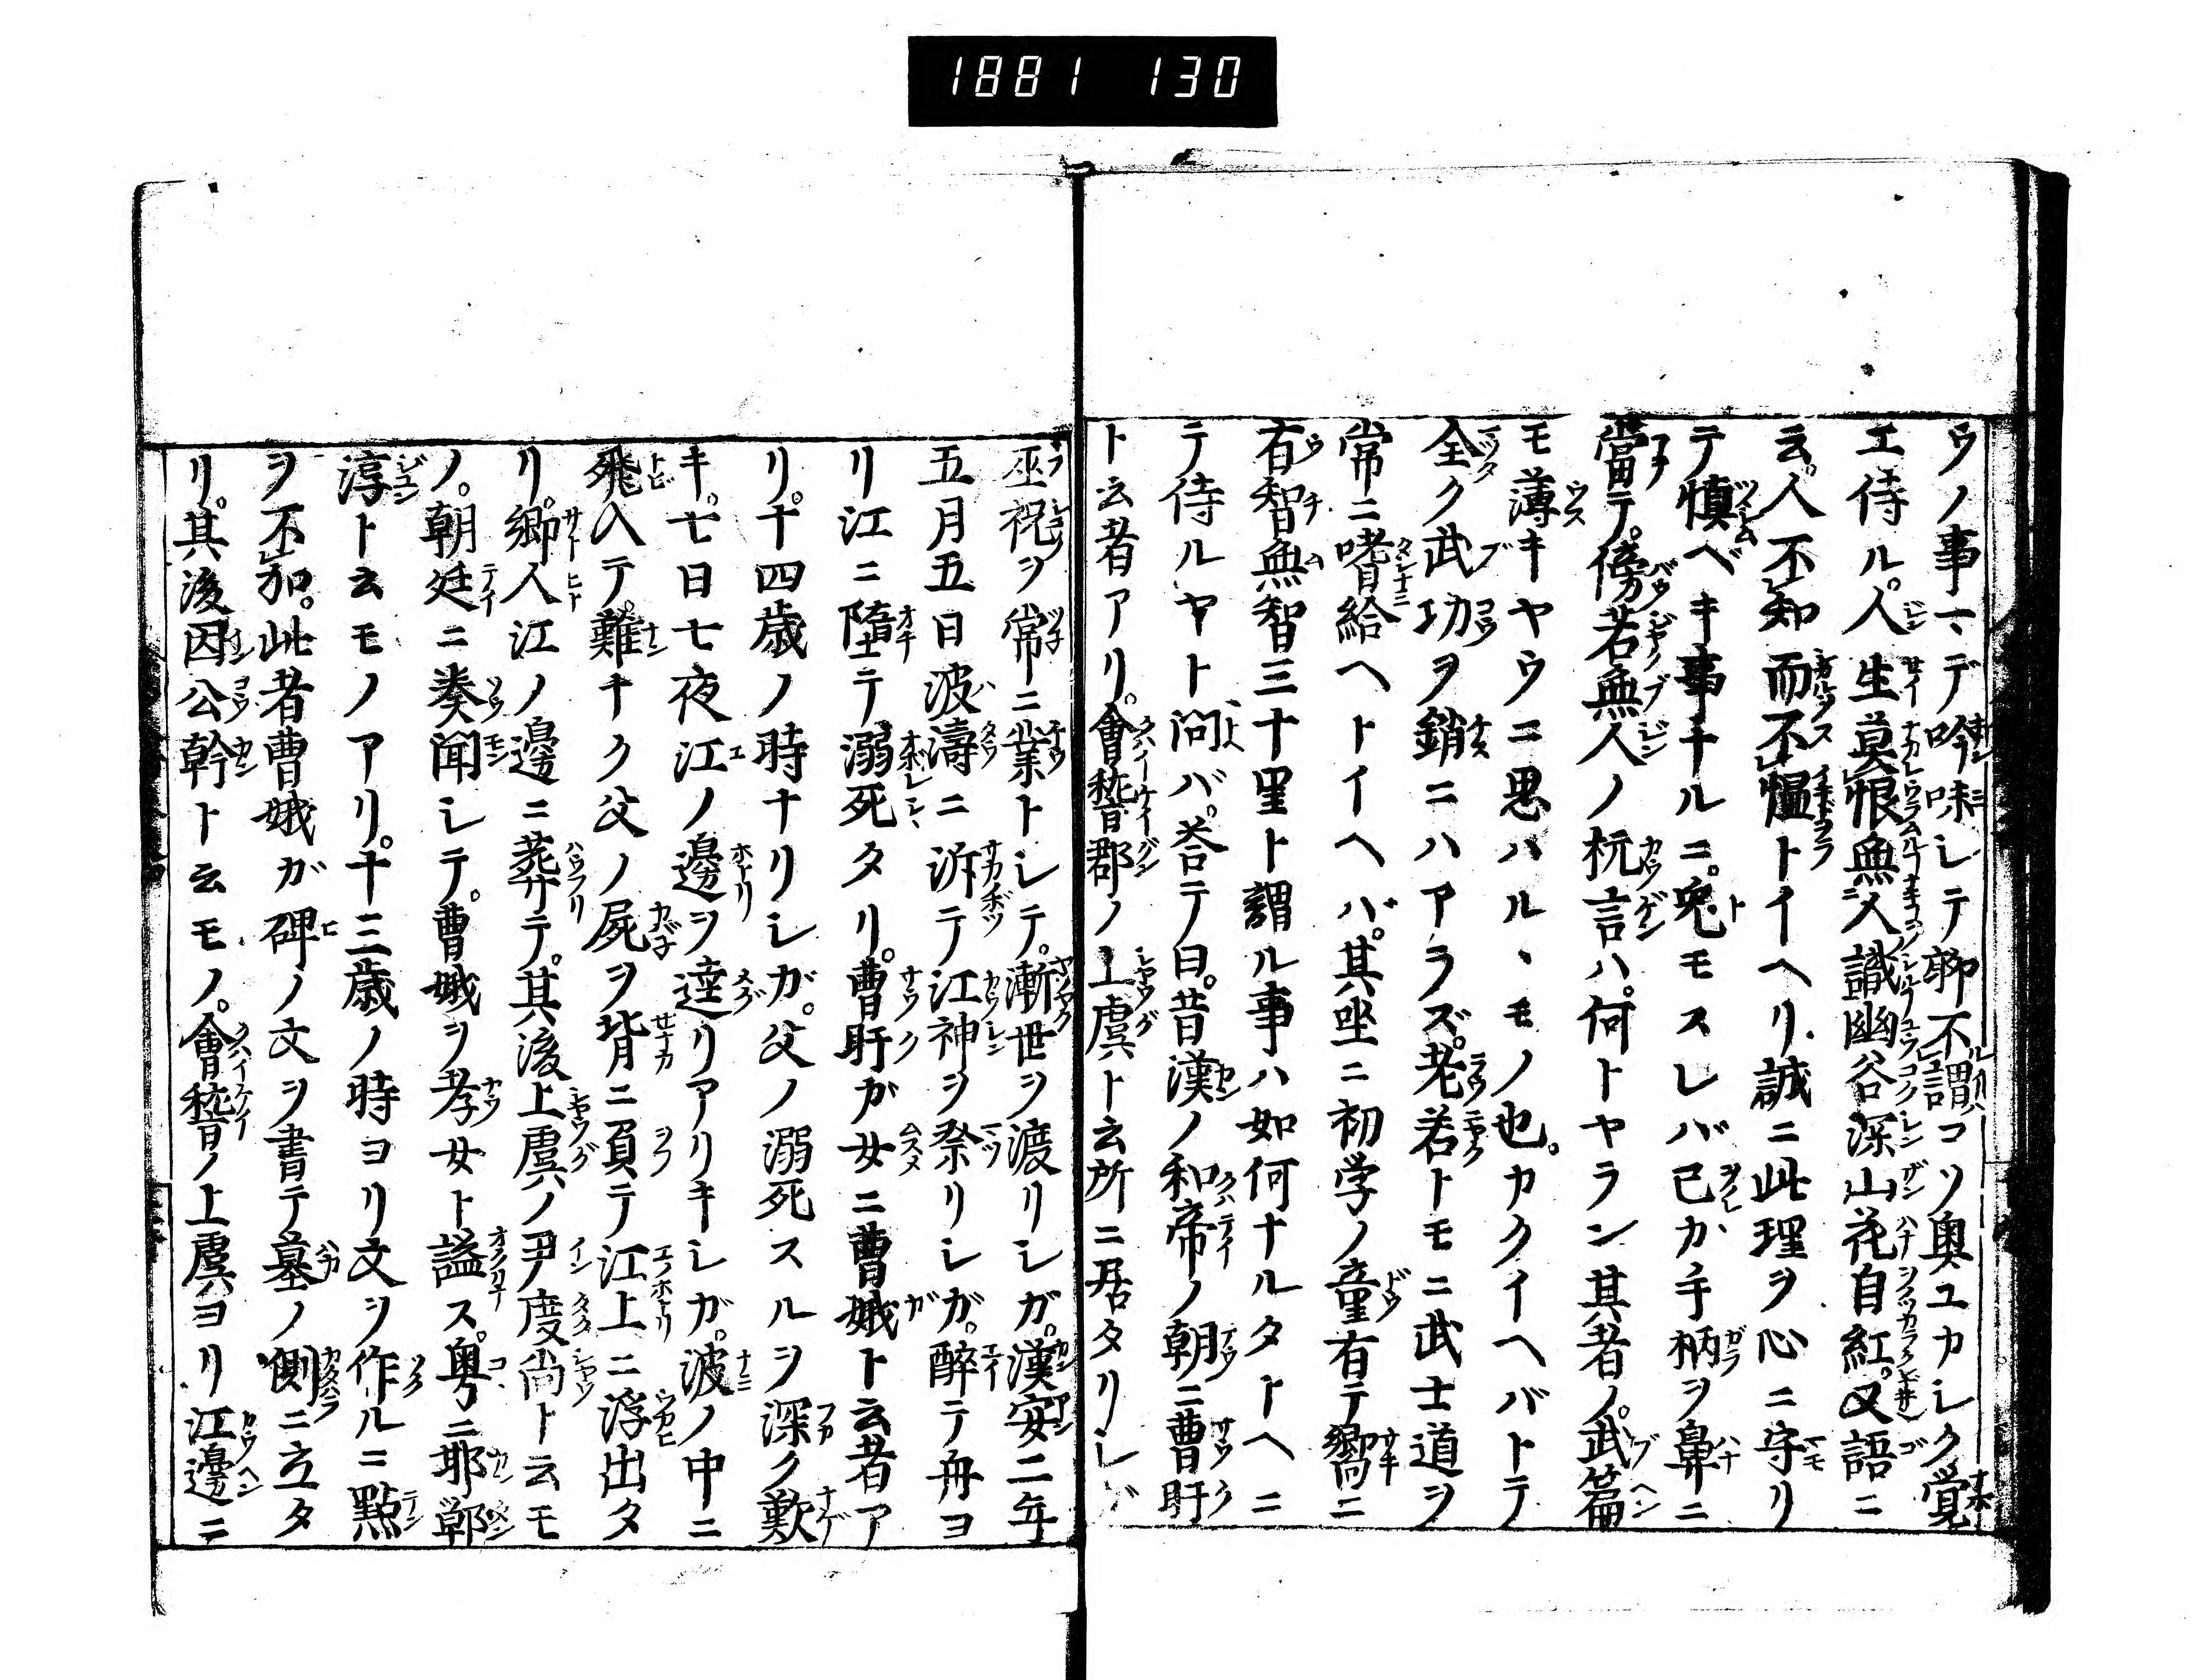 1881 130
ウノ事マデ吟味シテ聊不謂コソ奥ユカシク覚
エ侍ル。人生莫恨無人識幽谷深山花自紅。又語ニ
云。人不知而不慍トイヘリ。誠ニ此理ヲ心ニ守リ
テ慎ベキ事ナルニ。兎モスレバ己カ手柄ヲ鼻ニ
當テ。傍若無人ノ抗言ハ。何トヤラン其者ノ。武篇
モ薄キヤウニ思ハル、モノ也。カクイヘバトテ
全ク武功ヲ銷ニハアラズ。老若トモニ武士道ヲ
常ニ嗜給ヘトイヘバ。其坐ニ初学ノ童有テ嚮ニ
有智無智三十里ト謂ル事ハ如何ナルタトヘニ
テ侍ルヤト問バ。荅テ曰。昔漢ノ和帝ノ朝ニ曹盱
ト云者アリ。會稽郡ノ上虞ト云所ニ居タリシガ
巫祝ヲ常ニ業トシテ。漸世ヲ渡リシガ。漢安二年
五月五日波濤ニ泝テ江神ヲ祭リシガ。醉テ舟ヨ
リ江ニ墮テ溺死タリ。曹盱ガ女ニ曹娥ト云者ア
リ。十四歳ノ時ナリシガ。父ノ溺死スルヲ深ク歎
キ。七日七夜江ノ邊ヲ遶リアリキシガ。波ノ中ニ
飛入テ。難ナク父ノ屍ヲ背ニ負テ江上ニ浮出タ
リ。郷人江ノ邊ニ葬テ。其後上虞ノ尹度尚ト云モ
ノ。朝廷ニ奏聞シテ。曹娥ヲ孝女ト謚ス。粤ニ邯鄲
淳ト云モノアリ。十三歳ノ時ヨリ文ヲ作ルニ點
ヲ不加。此者曹娥ガ碑ノ文ヲ書テ墓ノ側ニ立タ
リ。其後因公幹ト云モノ。會稽ノ上虞ヨリ江邊ニ